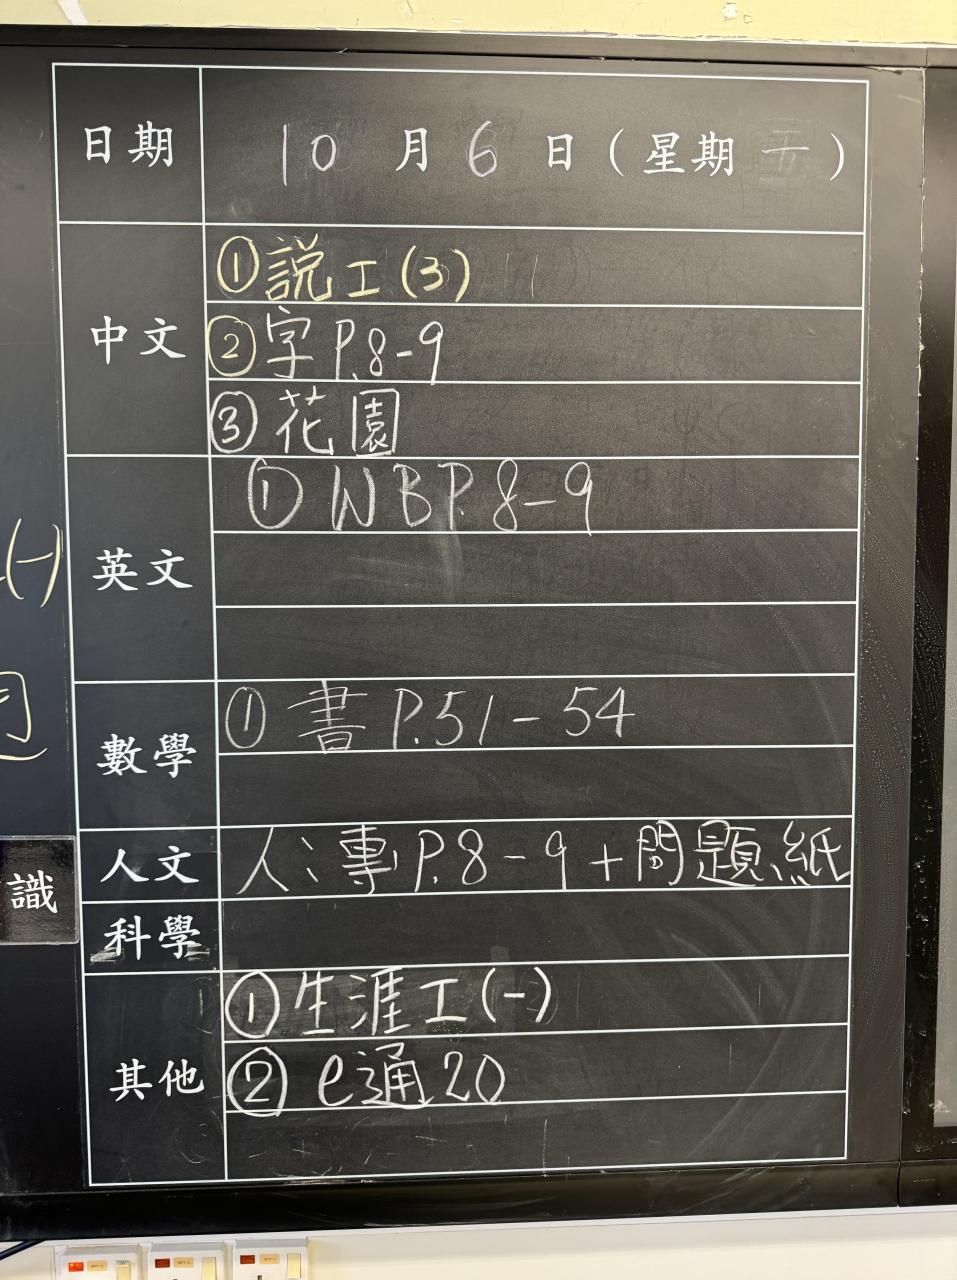 日期 10月6日(星期一)
中文
①説工(3)
②字P.8-9
③花園
英文
①WBP.8-9
數學
①書P.51-54
人文 人:專P.8-9+問題紙
科學
其他
①生涯工(一)
②e通20
(一)
識